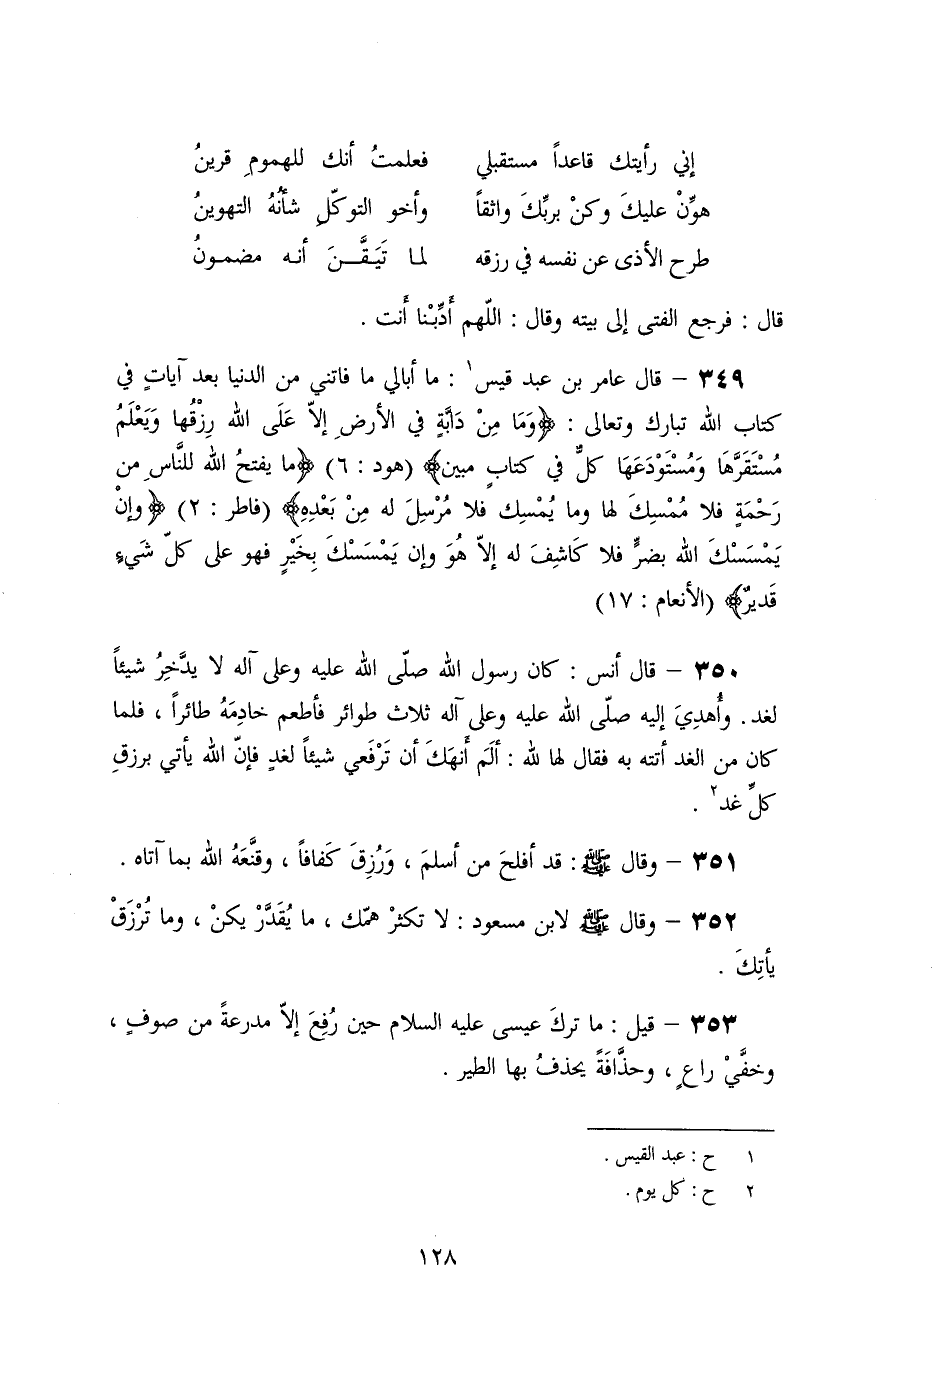 إني رأيتك قاعداً مستقبلي فعلمتُ أنك للهمومِ قرينُ
هوِّنْ عليكَ وكنْ بربِّكَ واثقاً وأخو التوكّلِ شأنُهُ التهوينُ
طرح الأذى عن نفسه في رزقه لما تَيَقَّـنَ أنه مضمونُ
قال : فرجع الفتى إلى بيته وقال : اللّهم أَدِّبْنا أَنت .
٣٤٩ – قال عامر بن عبد قيس١ : ما أبالي ما فاتني من الدنيا بعد آياتٍ في
كتاب الله تبارك وتعالى : ﴿وَمَا مِنْ دَابَّةٍ في الأرضِ إلاّ عَلَى الله رِزْقُها وَيَعْلَمُ
مُسْتَقَرَّهَا وَمُسْتَوْدَعَهَا كلٌّ في كتابٍ مبين﴾ (هود : ٦) ﴿ما يفتحُ الله للنَّاسِ من
رَحْمَةٍ فلا مُمْسِكَ لها وما يُمْسِك فلا مُرْسِلَ له مِنْ بَعْدِهِ﴾ (فاطر : ٢) ﴿وإنْ
يَمْسَسْكَ الله بضرٍّ فلا كَاشِفَ له إلاّ هُوَ وإن يَمْسَسْكَ بِخَيْرٍ فهو على كلّ شَيءٍ
قَديرٌ﴾ (الأنعام : ١٧)
٣٥٠ – قال أنس : كان رسول الله صلّى الله عليه وعلى آله لا يدَّخِرُ شيئاً
لغد . وأُهدِيَ إليه صلّى الله عليه وعلى آله ثلاث طوائر فأطعم خادِمَهُ طائراً ، فلما
كان من الغد أتته به فقال لها لله : ألَم أنهَكَ أن تَرْفَعي شيئاً لغدٍ فإنّ الله يأتي برزقِ
كلِّ غد٢ .
٣٥١ – وقال ﷺ : قد أفلحَ من أسلمَ ، وَرُزِقَ كَفافاً ، وقنَّعَهُ الله بما آتاه .
٣٥٢ – وقال ﷺ لابن مسعود : لا تكثرْ همّك ، ما يُقَدَّرْ يكنْ ، وما تُرْزَقْ
يأتِكَ .
٣٥٣ – قيل : ما تركَ عيسى عليه السلام حين رُفِعَ إلاّ مدرعةً من صوفٍ ،
وخفَّيْ راعٍ ، وحذَّافَةً يحذفُ بها الطير .
١ ح : عبد القيس .
٢ ح : كل يوم .
١٢٨